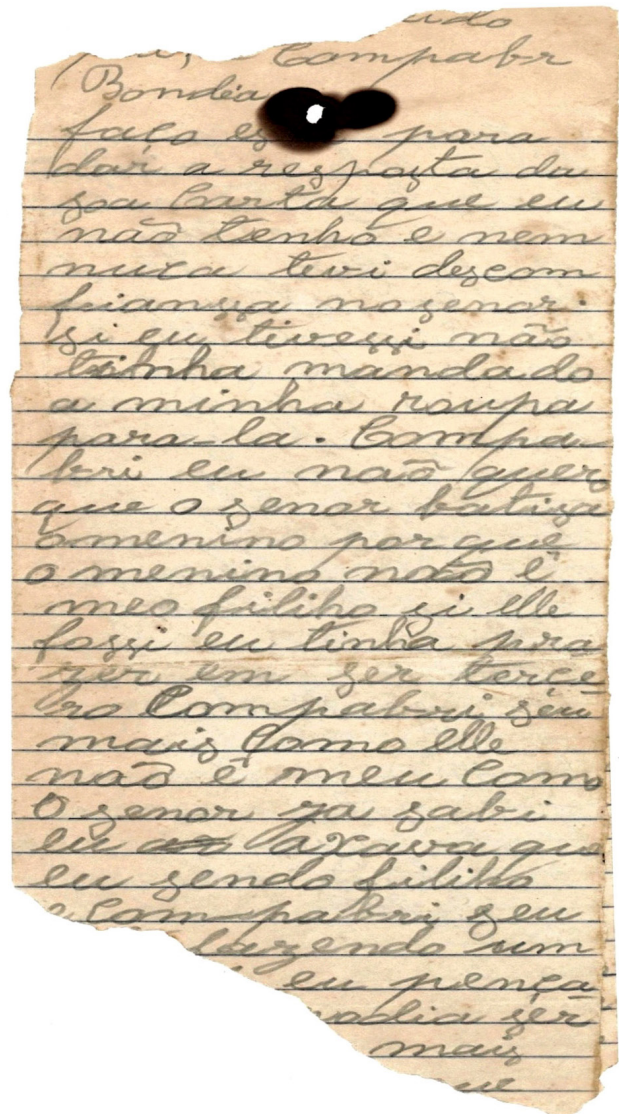 Compabr
Bondia
faço es para
dar a resposta da
soa Carta que eu
não tenho e nem
nuca tevi descom
fianssa nosenor
si eu tivessi não
tinha mandado
a minha roupa
para-la. Compa-
bri eu não quero
que o senor batiza
omenino porque
o menino não é
meo filiho si elle
fossi eu tinha pra
zer em ser terce
ro Compabri seu
mais Como elle
não é meu Como
O senor ja sabi
eu axava que
eu sendo filiho
e Compabri seu
fazendo um
eu pença
podia ser
mais